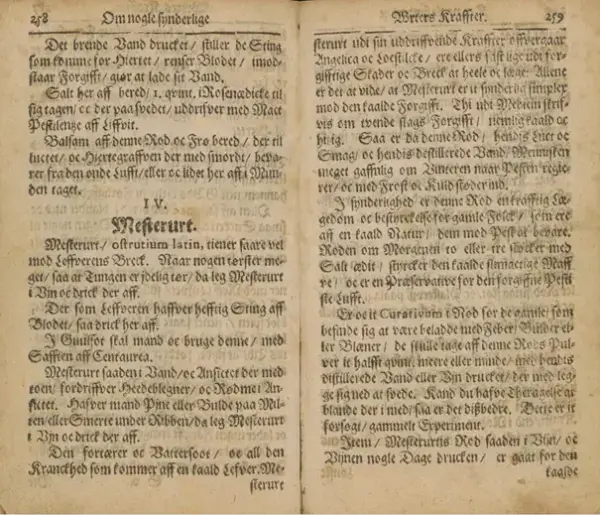 258 Om nogle synderlige
Det brende Vand drucket/ stiller de Sting
som komme for Hiertet/ renser Blodet/ imod-
staar Forgifft/ giør at lade sit Vand.
Salt her aff bered/ 1. qvint. i Rosenædicke til
sig tagen/ oc der paa svedet/ uddrifver med Mact
Pestilentze aff Liffvit.
Balsam aff denne Rod oc Frø bered/ der til
luctet/ oc Hiertegraffven der med smordt/ beva-
rer fra den onde Lufft/ eller oc lidet her aff i Mun-
den taget.
IV.
Mesterurt.
Mesterurt/ ostrutium latin, tiener saare vel
mod Leffverens Breck. Naar nogen tørster me-
get/ saa at Tungen er idelig tør/ da leg Mesterurt
i Vjn oc drick der aff.
Der som Leffveren haffver hefftig Sting aff
Blodet/ saa drick her aff.
I Guulsot skal mand oc bruge denne/ med
Safften aff Centaurea.
Mesterurt saaden i Vand/ oc Ansictet der med
toen/ fordriffver Heedeblegner/ oc Rødme i An-
sictet. Hafver mand Pjne eller Bulde paa Mil-
ten/ eller Smerte under Ribben/ da leg Mesterurt
i Vjn oc drick der aff.
Den fortærer oc Vattersoot/ oc all den
Kranckhed som kommer aff en kaald Lefver. Me-
sterurt
Urters Kraffter. 259
sterurt udi sin uddriffvende Kraffter offvergaar
Angelica oc
giftige Skader oc Breck at heele oc læge: Allene
er det at vide/ at Mesterurt er it synderlig simplex
mod den kaalde Forgifft. Thi udi Medicin skrif-
vis om tvende slags Forgifft/ nemlig kaald oc
hitzig. Saa er da denne Rod/ hendis Luct oc
Smag/ oc hendis destillerede Vand/ Mennisken
meget gaffnlig om Vinteren naar Pesten regie-
rer/ oc med Frost oc Kuld støder ind.
I synderlighed er denne Rod en krafftig Læ-
gedom oc bestyrckelse for gamle Folck/ som ere
aff en kaald Natur/ dem mod Pest at bevare.
Roden om Morgenen to eller tre stycker med
Salt ædit/ styrcker den kaalde slimactige Maff-
ve/ oc er en Præservative for den forgifftne Pesti-
ge Lufft.
Er oc it Curativum i Nød for de gamle/ som
befinde sig at være beladde med Feber/ Bulder el-
ler Blæner/ de skulle tage aff denne Rods Pul-
ver it halfft qvint. meere eller minde/ med hendis
distillerede Vand eller Vjn drucket/ der med leg-
ge sig ned at svede. Kand du hafve Theriac
blande der i med/ saa er det dißbedre. Dette er it
forsøgt/ gammelt Experiment.
Item/ Mesterurtis Rod saaden i Vjn/ oc
Vjnen nogle Dage drucken/ er gaat for den
kaalde